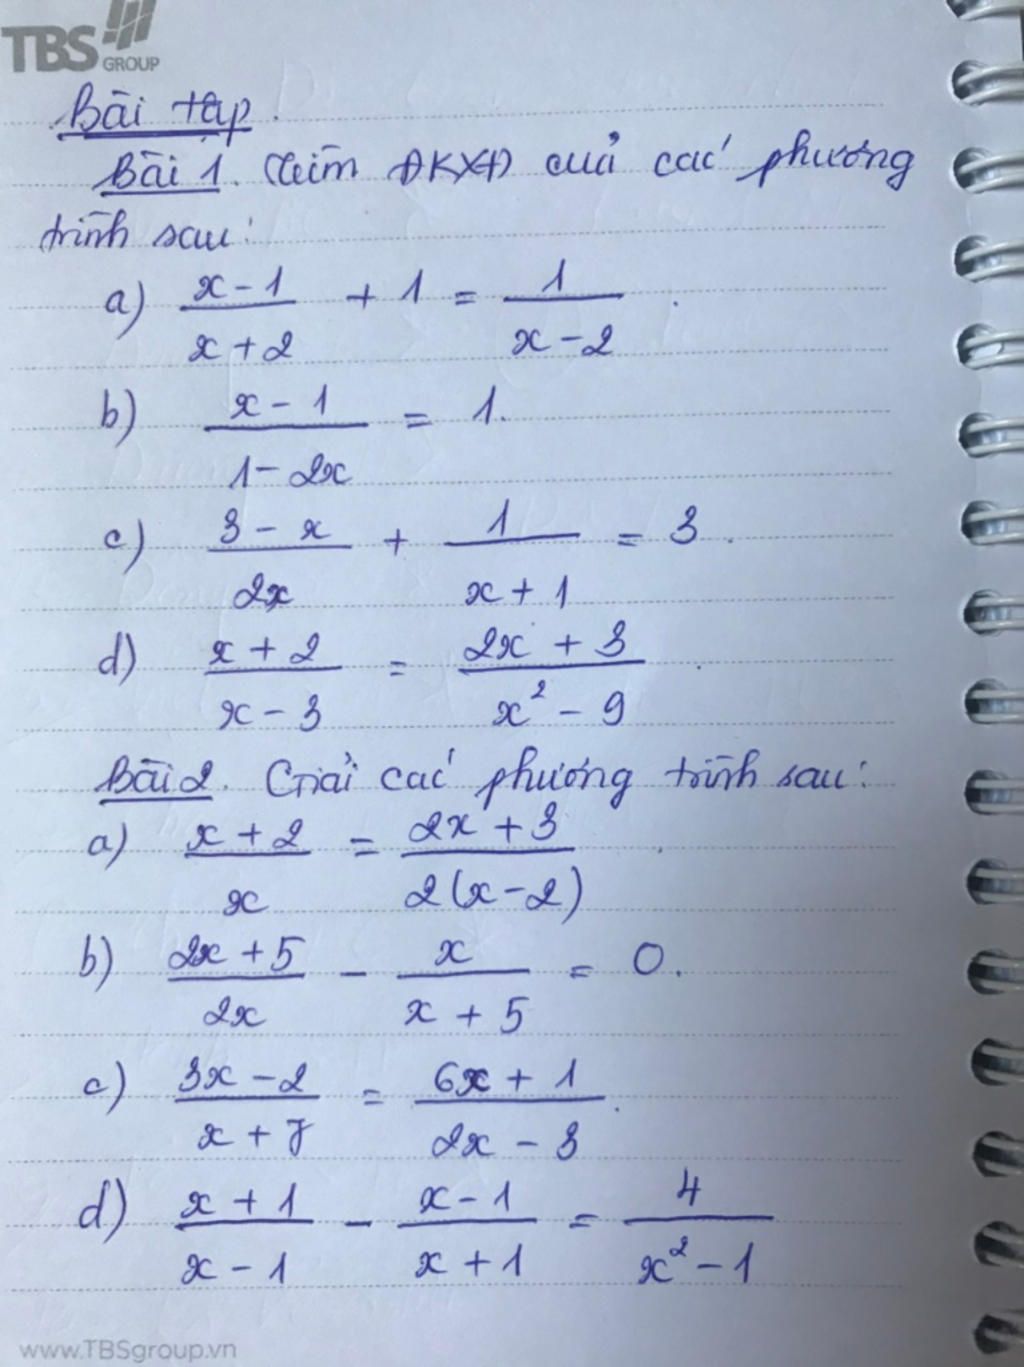 TBS GROUP
Bài tập.
Bài 1. Tìm ĐKXĐ của các phương
trình sau:
a) \frac{x-1}{x+2} + 1 = \frac{1}{x-2}.
b) \frac{x-1}{1-2x} = 1.
c) \frac{3-x}{2x} + \frac{1}{x+1} = 3.
d) \frac{x+2}{x-3} = \frac{2x+3}{x^2-9}.
Bài 2. Giải các phương trình sau:
a) \frac{x+2}{x} = \frac{2x+3}{2(x-2)}.
b) \frac{2x+5}{2x} - \frac{x}{x+5} = 0.
c) \frac{3x-2}{x+7} = \frac{6x+1}{2x-3}.
d) \frac{x+1}{x-1} - \frac{x-1}{x+1} = \frac{4}{x^2-1}
www.TBSgroup.vn